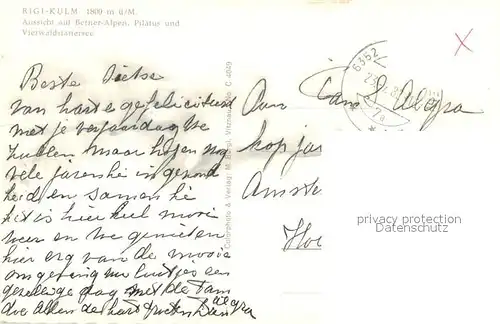 RIGI-KULM 1800 m ü/M.
Aussicht auf Berner-Alpen, Pilatus und
Vierwaldstättersee
Beste
van harte gefeliciteerd
met je verjaardag we
zullen maar hopen nog
vele jaren in gezond
heid en samen
het is hier heel mooi
weer en we genieten
hier erg van de mooie
omgeving
gezellige dag met de Fam
doe Allen de hart groeten Dan
Alegra
Colorphoto & Verlag: M. Vitznau No. C 4049
6352
7a
Aan Fam Alegra
kop jas
Amste
Hol
privacy protection
Datenschutz